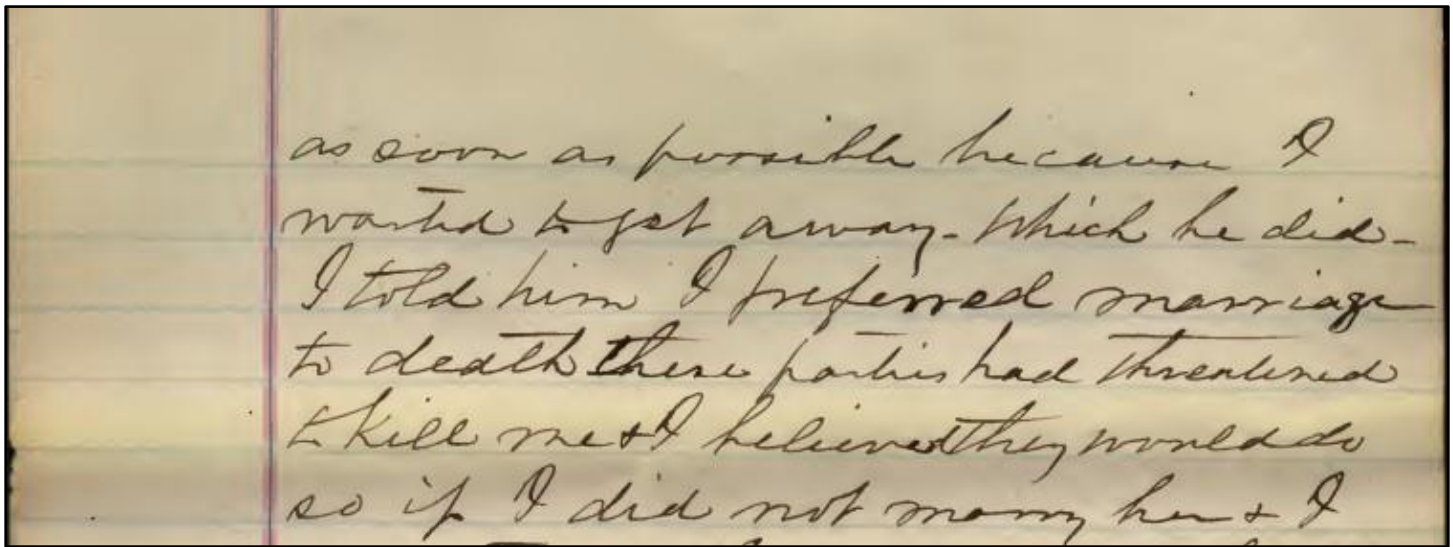 as soon as possible because I
wanted to get away - which he did -
I told him I preferred marriage
to death these parties had threatened
to kill me & I believed they would do
so if I did not marry her & I